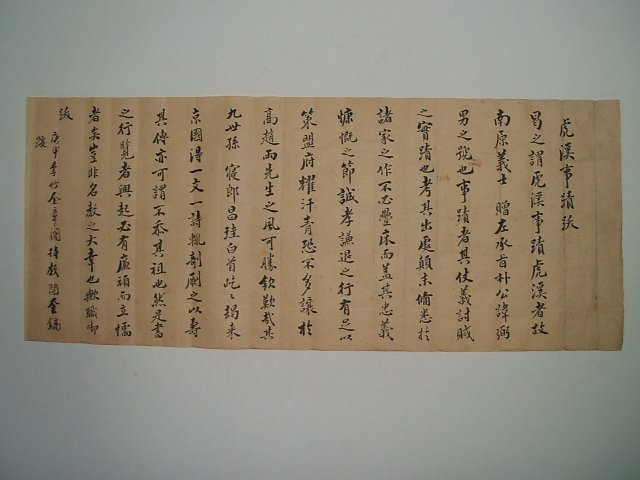 虎溪事蹟跋
曷之謂虎溪事蹟虎溪者故
南原義士 贈左承旨朴公諱弼
男之號也事蹟者其仗義討賊
之實蹟也考其出處顛末備悉於
諸家之作不必疊床而蓋其忠義
慷慨之節誠孝謙退之行有足以
策盟府耀汗青恐不多讓於
高趙兩先生之風可勝欽歎哉其
九世孫 寢郎昌珪白首屹〻竭来
京國得一文一詩輒剞劂之以壽
其傳亦可謂不忝其祖也然是書
之行覽者興起必有廉頑而立懦
者矣豈非名敎之大幸也歟職卿
跋
庚申季 金章閣待敎 金鎬